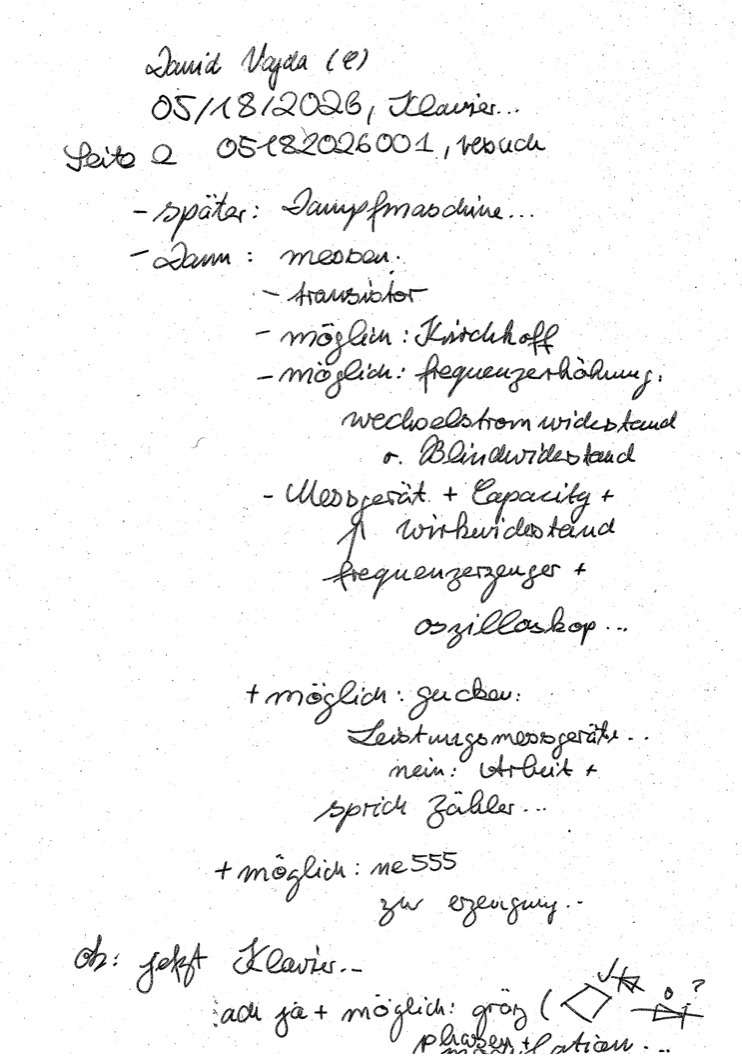 David Vajda (C)
05/18/2026, Klavier...
Seite 2 05182026001, vesuch
- später: Dampfmaschine...
- Dann: messen.
- transistor
- möglich: Kirchhoff
- möglich: frequenzerhöhung,
wechselstromwidestand
o. Blindwidestand
- Messgerät + Capacity +
wirkwidestand
frequenzerzeuger +
oszilloskop...
+ möglich: gucken:
Leistungsmessgeräte..
nein: Arbeit +
sprich Zähler...
+ möglich: ne555
zur erzeugung..
ok: jetzt Klavier...
ach ja + möglich: grätz ( ?
phasen +